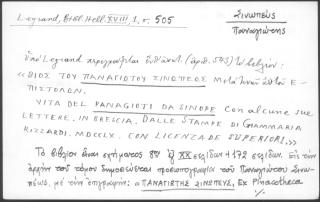 Legrand, Bibl. Hell. XVIII, 1, σ. 505
Σινωπεύς
Παναγιώτης
Ὑπὸ Legrand περιγράφεται ἐνθ' ἀνωτ. (ἀριθ. 543) τὸ βιβλίον:
«ΒΙΟΣ ΤΟΥ ΠΑΝΑΓΙΟΤΟΥ ΣΙΝΩΠΕΩΣ Μετὰ τινῶν αὐτοῦ Ε-
ΠΙΣΤΟΛΩΝ.
VITA DEL PANAGIOTI DA SINOPE con alcune sue
LETTERE, IN BRESCIA, DALLE STAMPE DI GIAMMARIA
RIZZARDI. MDCCLX. CON LICENZA DE' SUPERIORI.»
Τὸ βιβλίον εἶναι σχήματος 8ου XX σελίδων + 172 σελίδων. Εἰς τὴν
ἀρχὴν τοῦ τόμου δημοσιεύεται προσωπογραφία τοῦ Παναγιώτου Σινω-
πέως, μὲ τὴν ἐπιγραφήν: «ΠΑΝΑΓΙΩΤΗΣ ΣΙΝΩΠΕΥΣ, Ex Pinacotheca